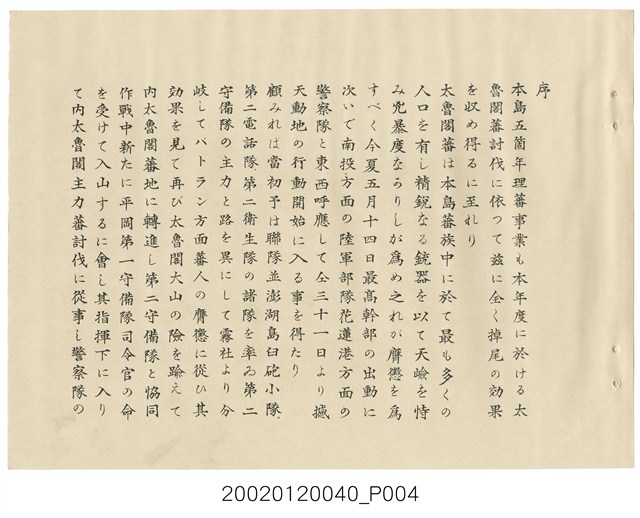 序
本島五箇年理蕃事業も本年度に於ける太
魯閣蕃討伐に依つて茲に全く掉尾の効果
を収め得るに至れり
太魯閣蕃は本島蕃族中に於て最も多くの
人口を有し精銳なる銃器を以て天嶮を恃
み兇暴度なかりしが爲め之れが膺懲を爲
すべく今夏五月十四日最高幹部の出動に
次いで南投方面の陸軍部隊花蓮港方面の
警察隊と東西呼應して仝三十一日より撼
天動地の行動開始に入る事を得たり
顧みれば當初予は聯隊並澎湖島臼砲小隊、
第二電話隊、第二衛生隊の諸隊を率ゐ第二
守備隊の主力と路を異にして霧社より分
岐してバトラン方面蕃人の膺懲に從ひ其
効果を見て再び太魯閣大山の險を踰えて
内太魯閣蕃地に轉進し第二守備隊と恊同
作戰中新たに平岡第一守備隊司令官の命
を受けて入山するに會し其指揮下に入り
て内太魯閣主力蕃討伐に從事し警察隊の
20020120040_P004